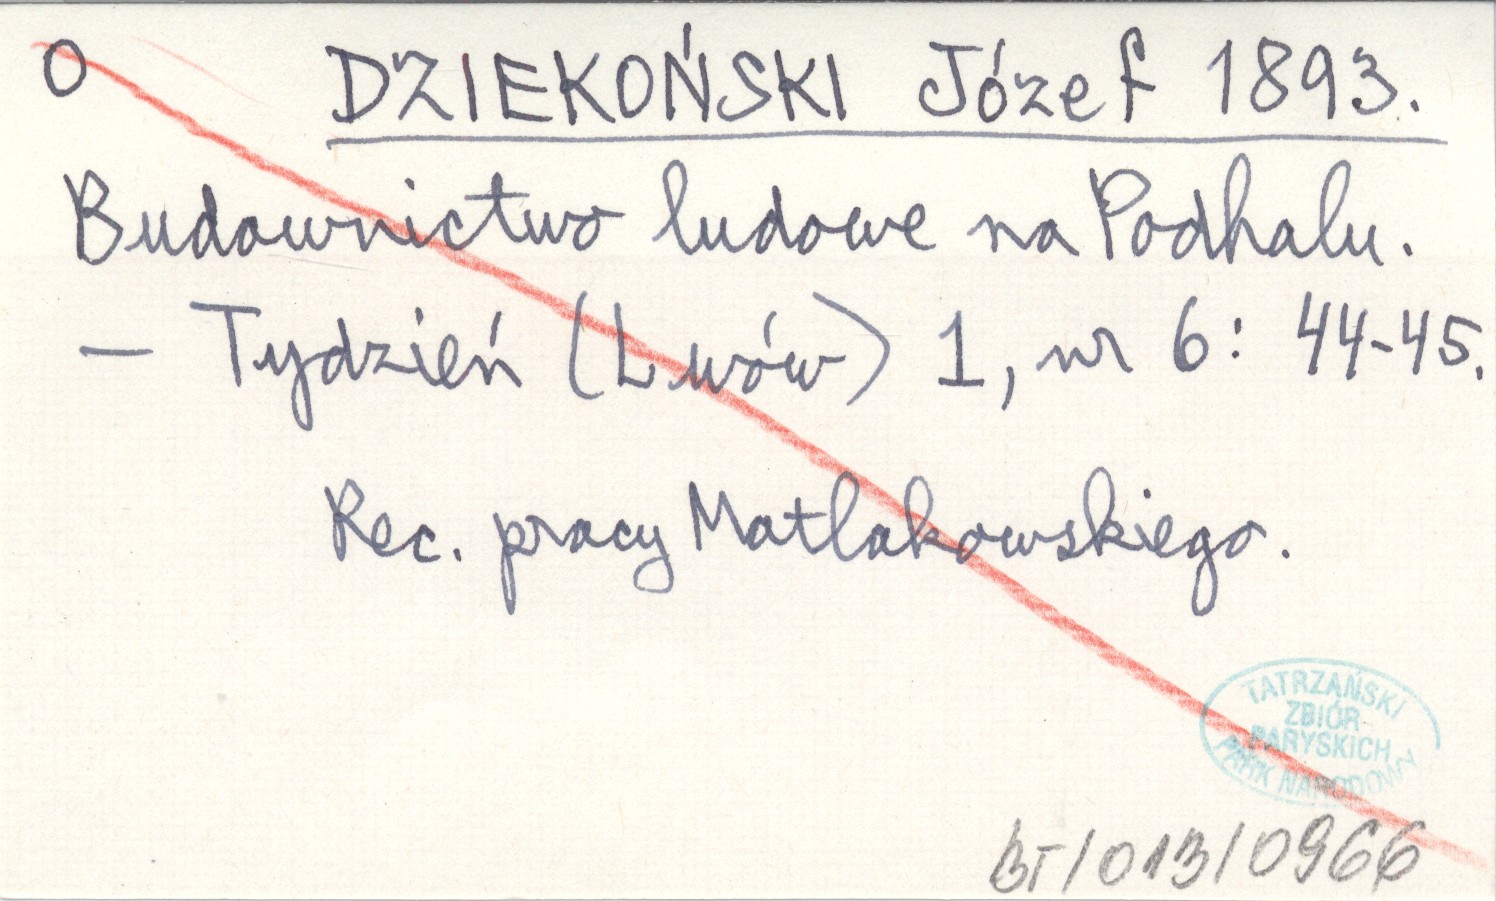 O DZIEKOŃSKI Józef 1893.
Budownictwo ludowe na Podhalu.
— Tydzień (Lwów) 1, nr 6: 44-45.
Rec. pracy Matlakowskiego.
TATRZAŃSKI
ZBIÓR
PARYSKICH
PARK NARODOWY
BT/013/0966